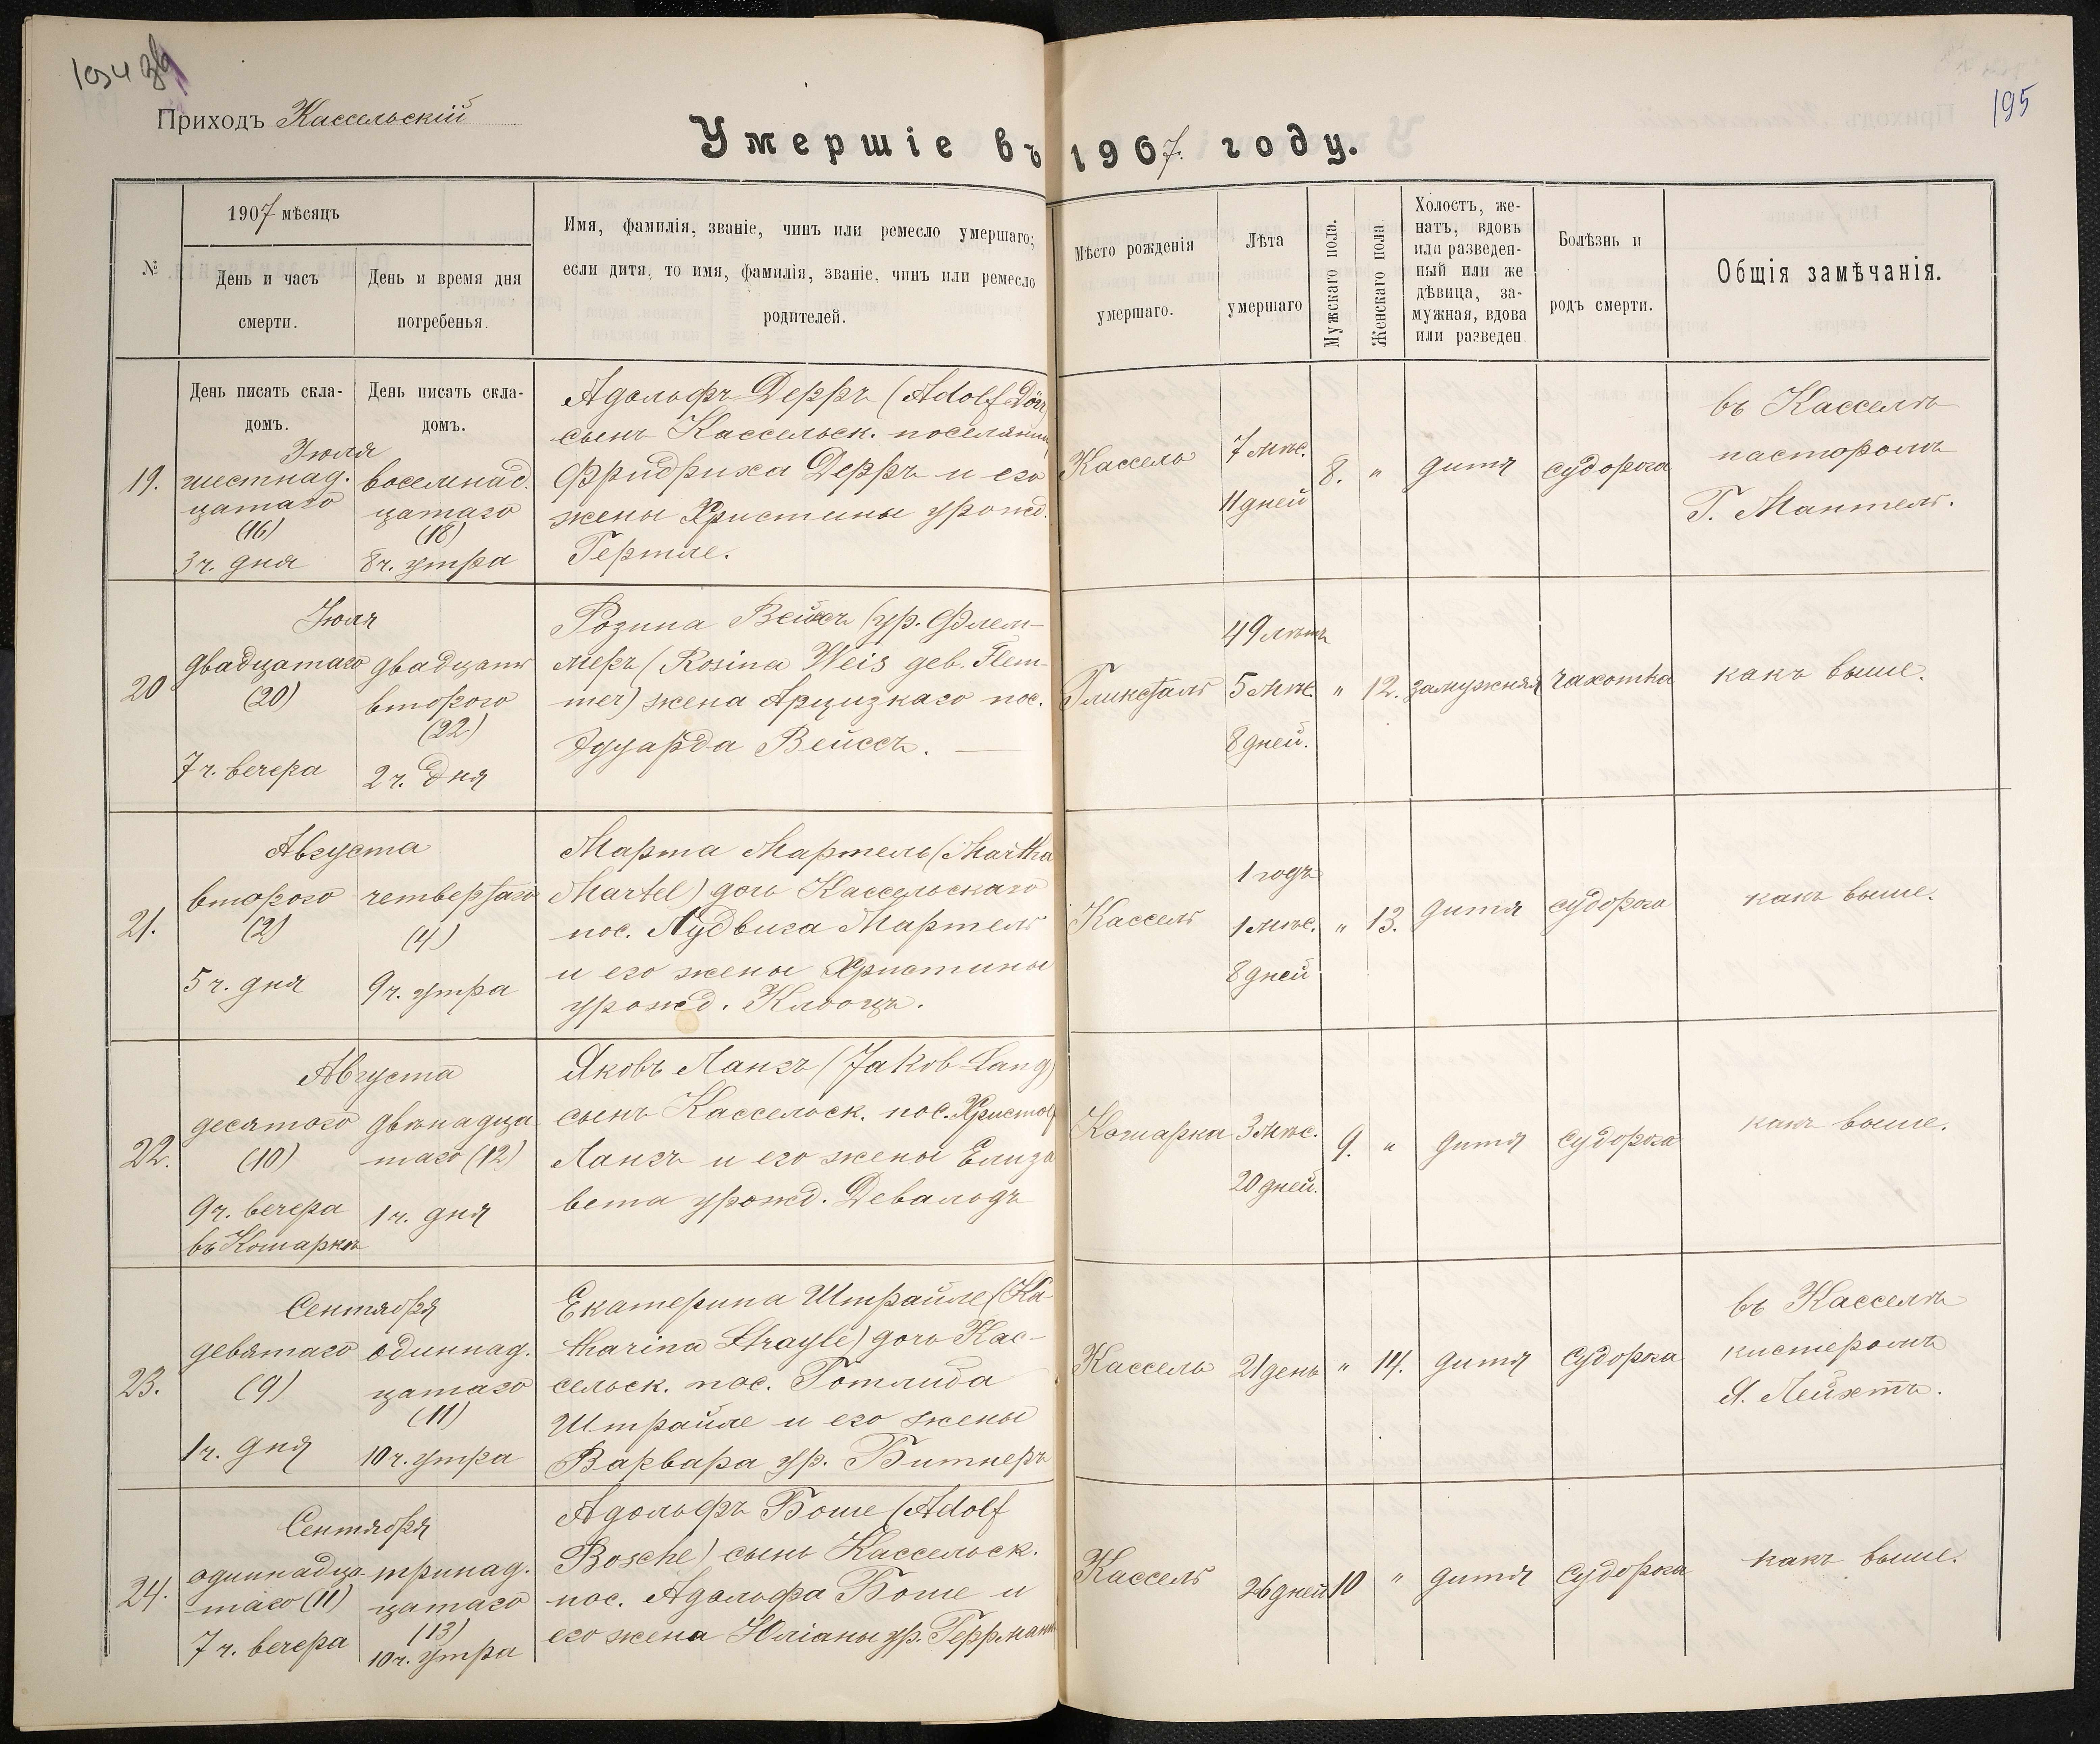 195
Приходъ Кассельскій
Умершіе въ 1907 году.
№
1907 мѣсяцъ
День и часъ
смерти.
День и время дня
погребенья.
Имя, фамилія, званіе, чинъ или ремесло умершаго;
если дитя, то имя, фамилія, званіе, чинъ или ремесло
родителей.
Мѣсто рожденія
умершаго.
Лѣта
умершаго
Мужскаго пола.
Женскаго пола
Холостъ, же-
натъ, вдовъ
или разведен-
ный или же
дѣвица, за-
мужная, вдова
или разведен.
Болѣзнь и
родъ смерти.
Общія замѣчанія.
День писать скла-
домъ.
День писать скла-
домъ.
Іюля
19.
шестнад.
цатаго
(16)
3 ч. дня
восемнад.
цатаго
(18)
8 ч. утра
Адольфъ Дерръ (Adolf Dörr
сынъ Кассельск. поселянина
Фридриха Дерръ и его
жены Христины урожд.
Гертле.
Кассель
7 мѣс.
11 дней
8.
"
дитя
судорога
въ Касселѣ
пасторомъ
Г. Мантель.
Іюля
20
двадцатаго
(20)
7 ч. вечера
двадцать
второго
(22)
2 ч. дня
Розина Вейсъ (ур. Флем-
меръ (Rosina Weis geb. Flem-
mer) жена Арцизкаго пос.
Эдуарда Вейссъ. —
Гликсталь
49 лѣтъ
5 мѣс.
8 дней.
"
12.
замужняя
чахотка
какъ выше.
Августа
21.
второго
(2)
5 ч. дня
четвертаго
(4)
9 ч. утра
Марта Мартель (Martha
Martel) дочь Кассельскаго
пос. Лудвига Мартель
и его жены Христины
урожд. Клооцъ.
Кассель
1 годъ
1 мѣс.
8 дней
"
13.
дитя
судорога
какъ выше.
Августа
22.
десятого
(10)
9 ч. вечера
въ Комаркѣ
двѣнадца
таго (12)
1 ч. дня
Яковъ Лангъ (Jakob Lang)
сынъ Кассельск. пос. Христоф
Лангъ и его жены Елиза
вета урожд. Девальдъ
Комарка
3 мѣс.
20 дней.
9.
"
дитя
судорога
какъ выше.
Сентября
23.
девятаго
(9)
1 ч. дня
одиннад.
цатаго
(11)
10 ч. утра
Екатерина Штрайле (Ka
tharina Strayle) дочь Кас-
сельск. пос. Готлиба
Штрайле и его жены
Варвара ур. Битнеръ
Кассель
21 день
"
14.
дитя
судорога
въ Касселѣ
кистеромъ
Я. Лейхтъ.
Сентября
24.
одиннадца
таго (11)
7 ч. вечера
тринад.
цатаго
(13)
10 ч. утра
Адольфъ Боше (Adolf
Bosche) сынъ Кассельск.
пос. Адольфа Боше и
его жена Юліаны ур. Геррманъ
Кассель
26 дней
10
"
дитя
судорога
какъ выше.